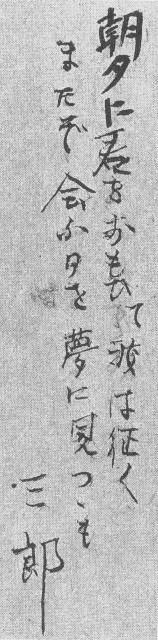 朝夕に君をおもひて我は征く
またぞ会ふ日を夢に見つゝも
三郎